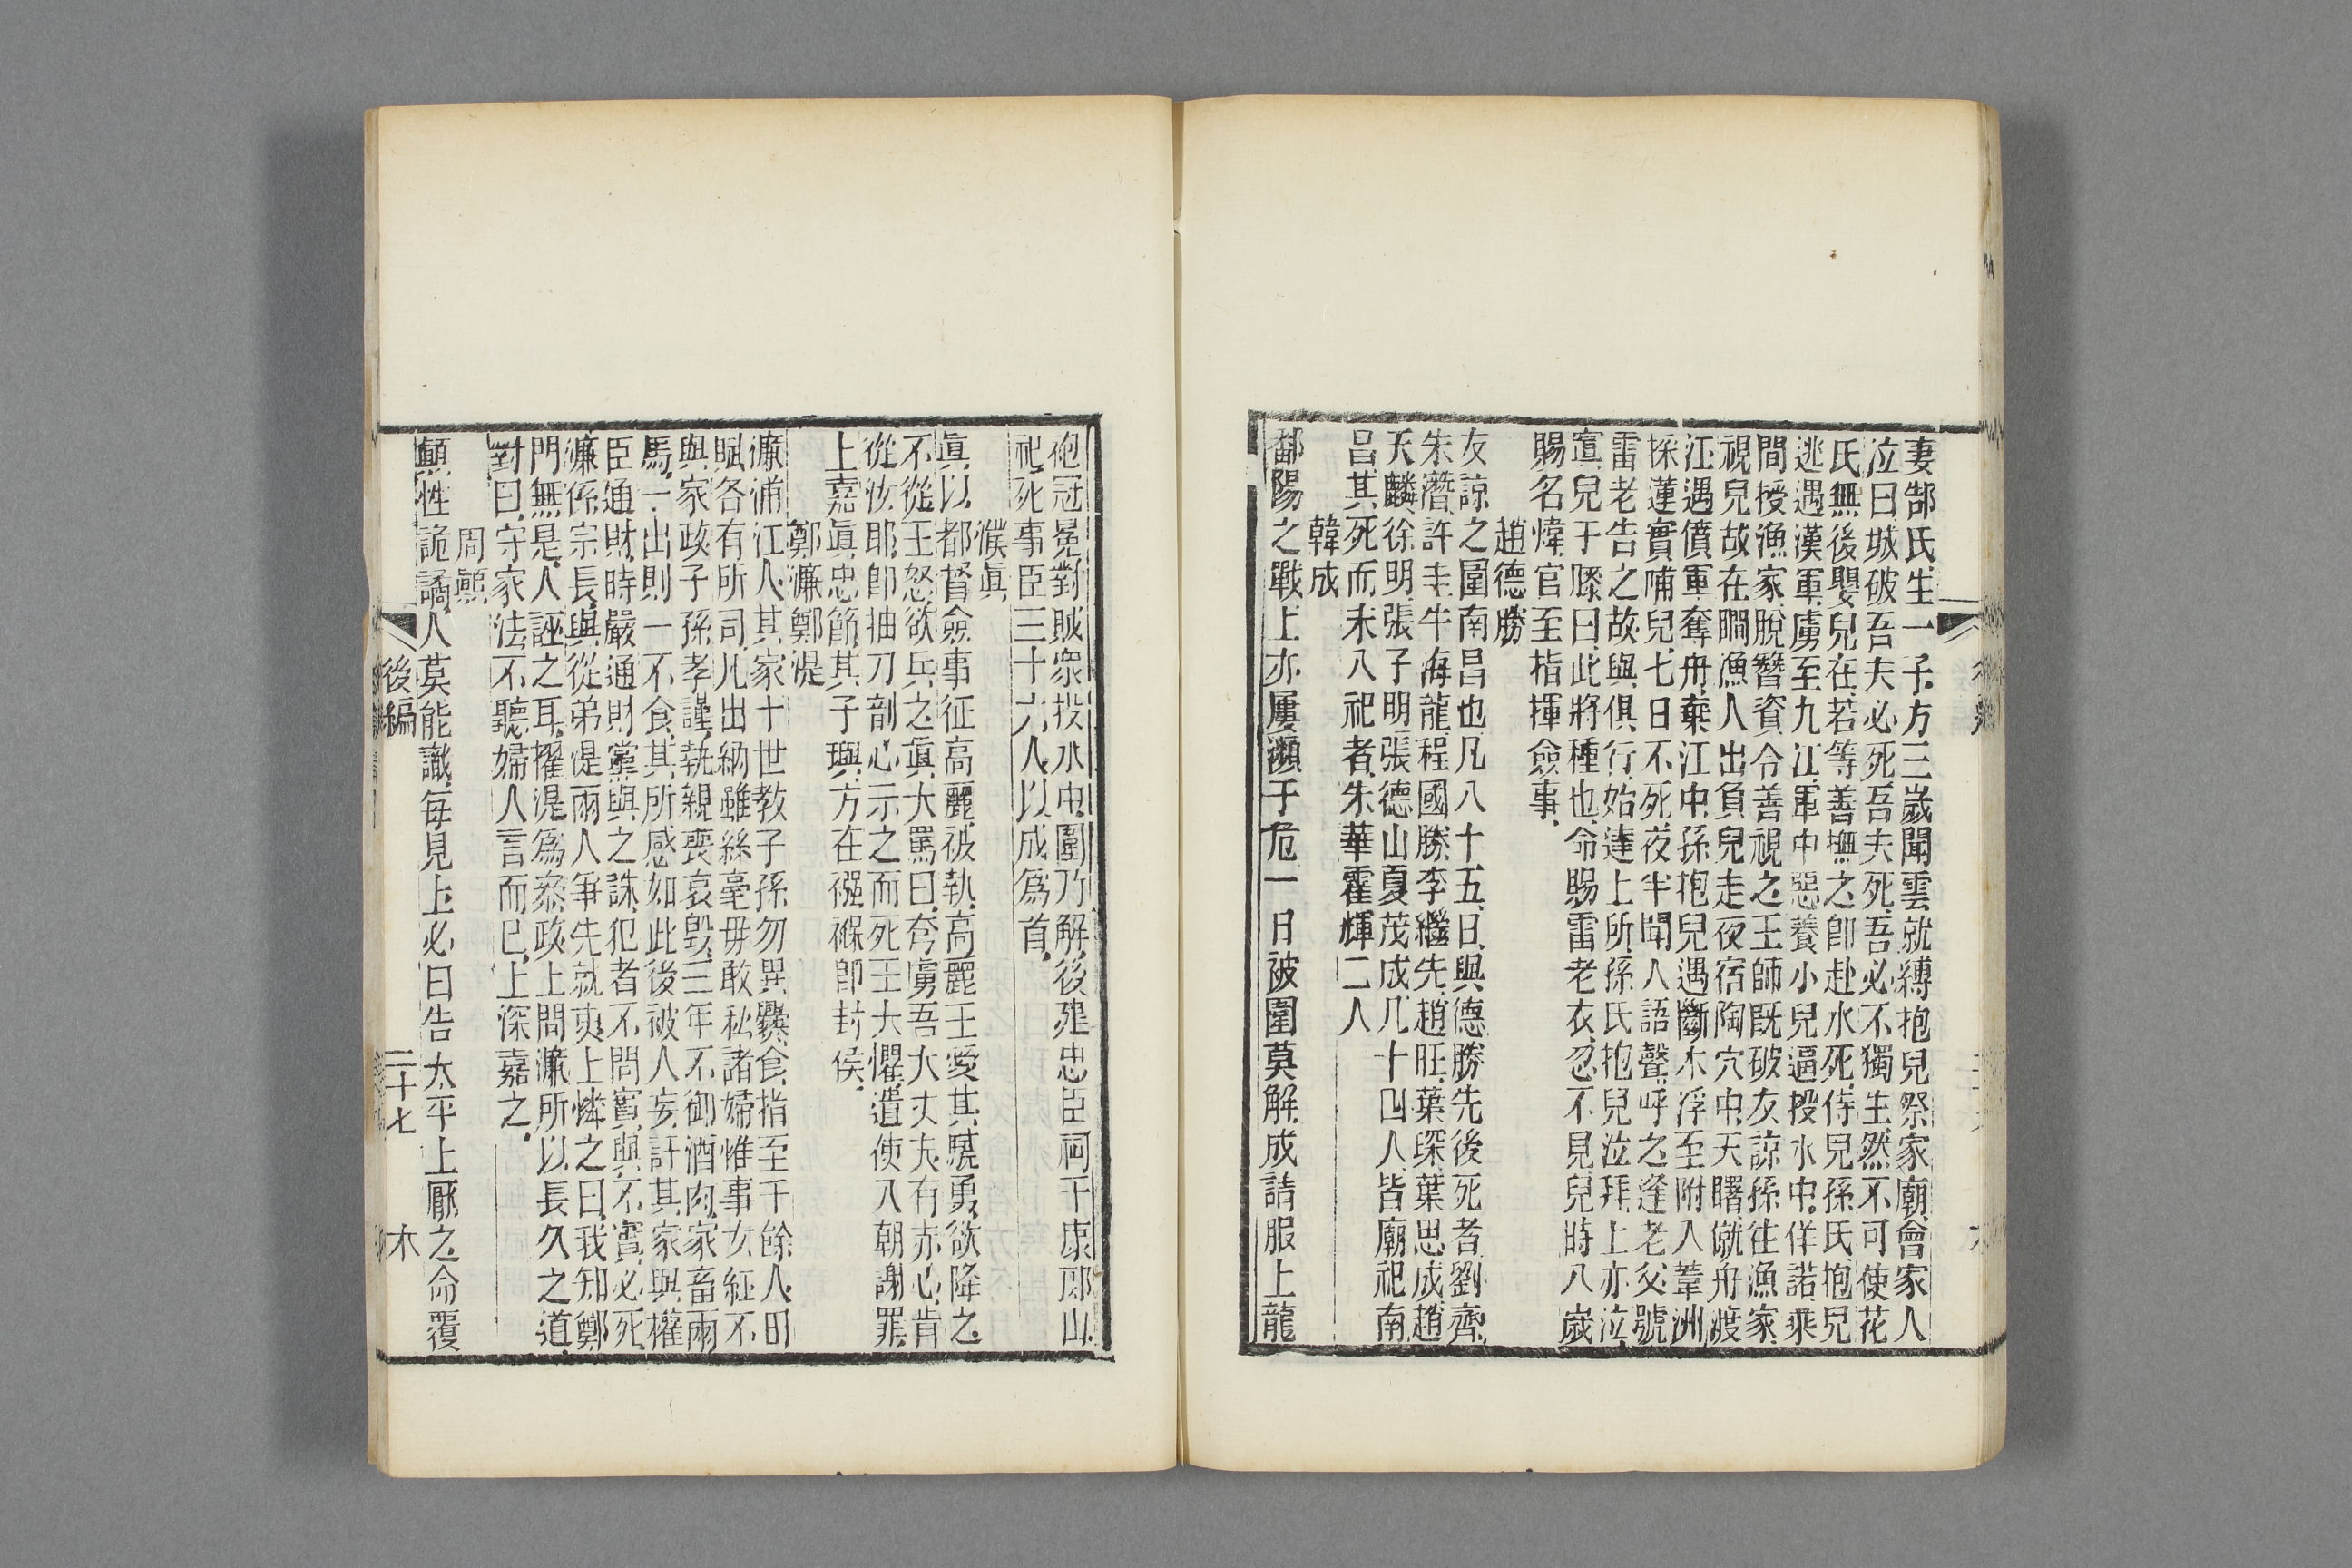 妻郜氏生一子方三歲聞雲就縛抱兒祭家廟會家人
泣曰城破吾夫必死吾夫死吾必不獨生然不可使花
氏無後嬰兒在若等善撫之卽赴水死侍兒孫氏抱兒
逃遇漢軍虜至九江軍中惡養小兒逼投水中佯諾乘
間授漁家脫簪資令善視之王師旣破友諒孫往漁家
視兒故在瞷漁人出負兒走夜宿陶穴中天曙僦舟渡
江遇僨軍奪舟棄江中孫抱兒遇斷木浮至附入葦洲
採蓮實哺兒七日不死夜半聞人語聲呼之逢老父號
雷老告之故與俱行始達上所孫氏抱兒泣拜上亦泣
寘兒于膝曰此將種也命賜雷老衣忽不見兒時八歲
賜名煒官至指揮僉事
趙德勝
友諒之圍南昌也凡八十五日與德勝先後死者劉齊
朱潛許圭牛海龍程國勝李繼先趙旺葉琛葉思成趙
天麟徐明張子明張德山夏茂成凡十四人皆廟祀南
昌其死而未入祀者朱華霍輝二人
韓成
鄱陽之戰上亦屢瀕于危一日被圍莫解成請服上龍
袍冠冕對賊眾投水中圍乃解後建忠臣祠于康郎山
祀死事臣三十六人以成爲首
濮眞
眞以都督僉事征高麗被執高麗王愛其驍勇欲降之
不從王怒欲兵之眞大罵曰夯虜吾大丈夫有赤心肯
從汝耶卽抽刀剖心示之而死王大懼遣使入朝謝罪
上嘉眞忠節其子璵方在襁褓卽封侯
鄭濂鄭湜
濂浦江人其家十世教子孫勿異爨食指至千餘人田
賦各有所司凡出納雖絲毫毋敢私諸婦惟事女紅不
與家政子孫孝謹執親喪哀毀三年不御酒肉家畜兩
馬一出則一不食其所感如此後被人妄訐其家與權
臣通財時嚴通財黨與之誅犯者不問實與不實必死
濂係宗長與從弟湜兩人爭先就夷上憐之曰我知鄭
門無是人誣之耳擢湜爲叅政上問濂所以長久之道
對曰守家法不聽婦人言而已上深嘉之
周顚
顚性詭譎人莫能識每見上必曰告太平上厭之命覆
後編
二十七
木